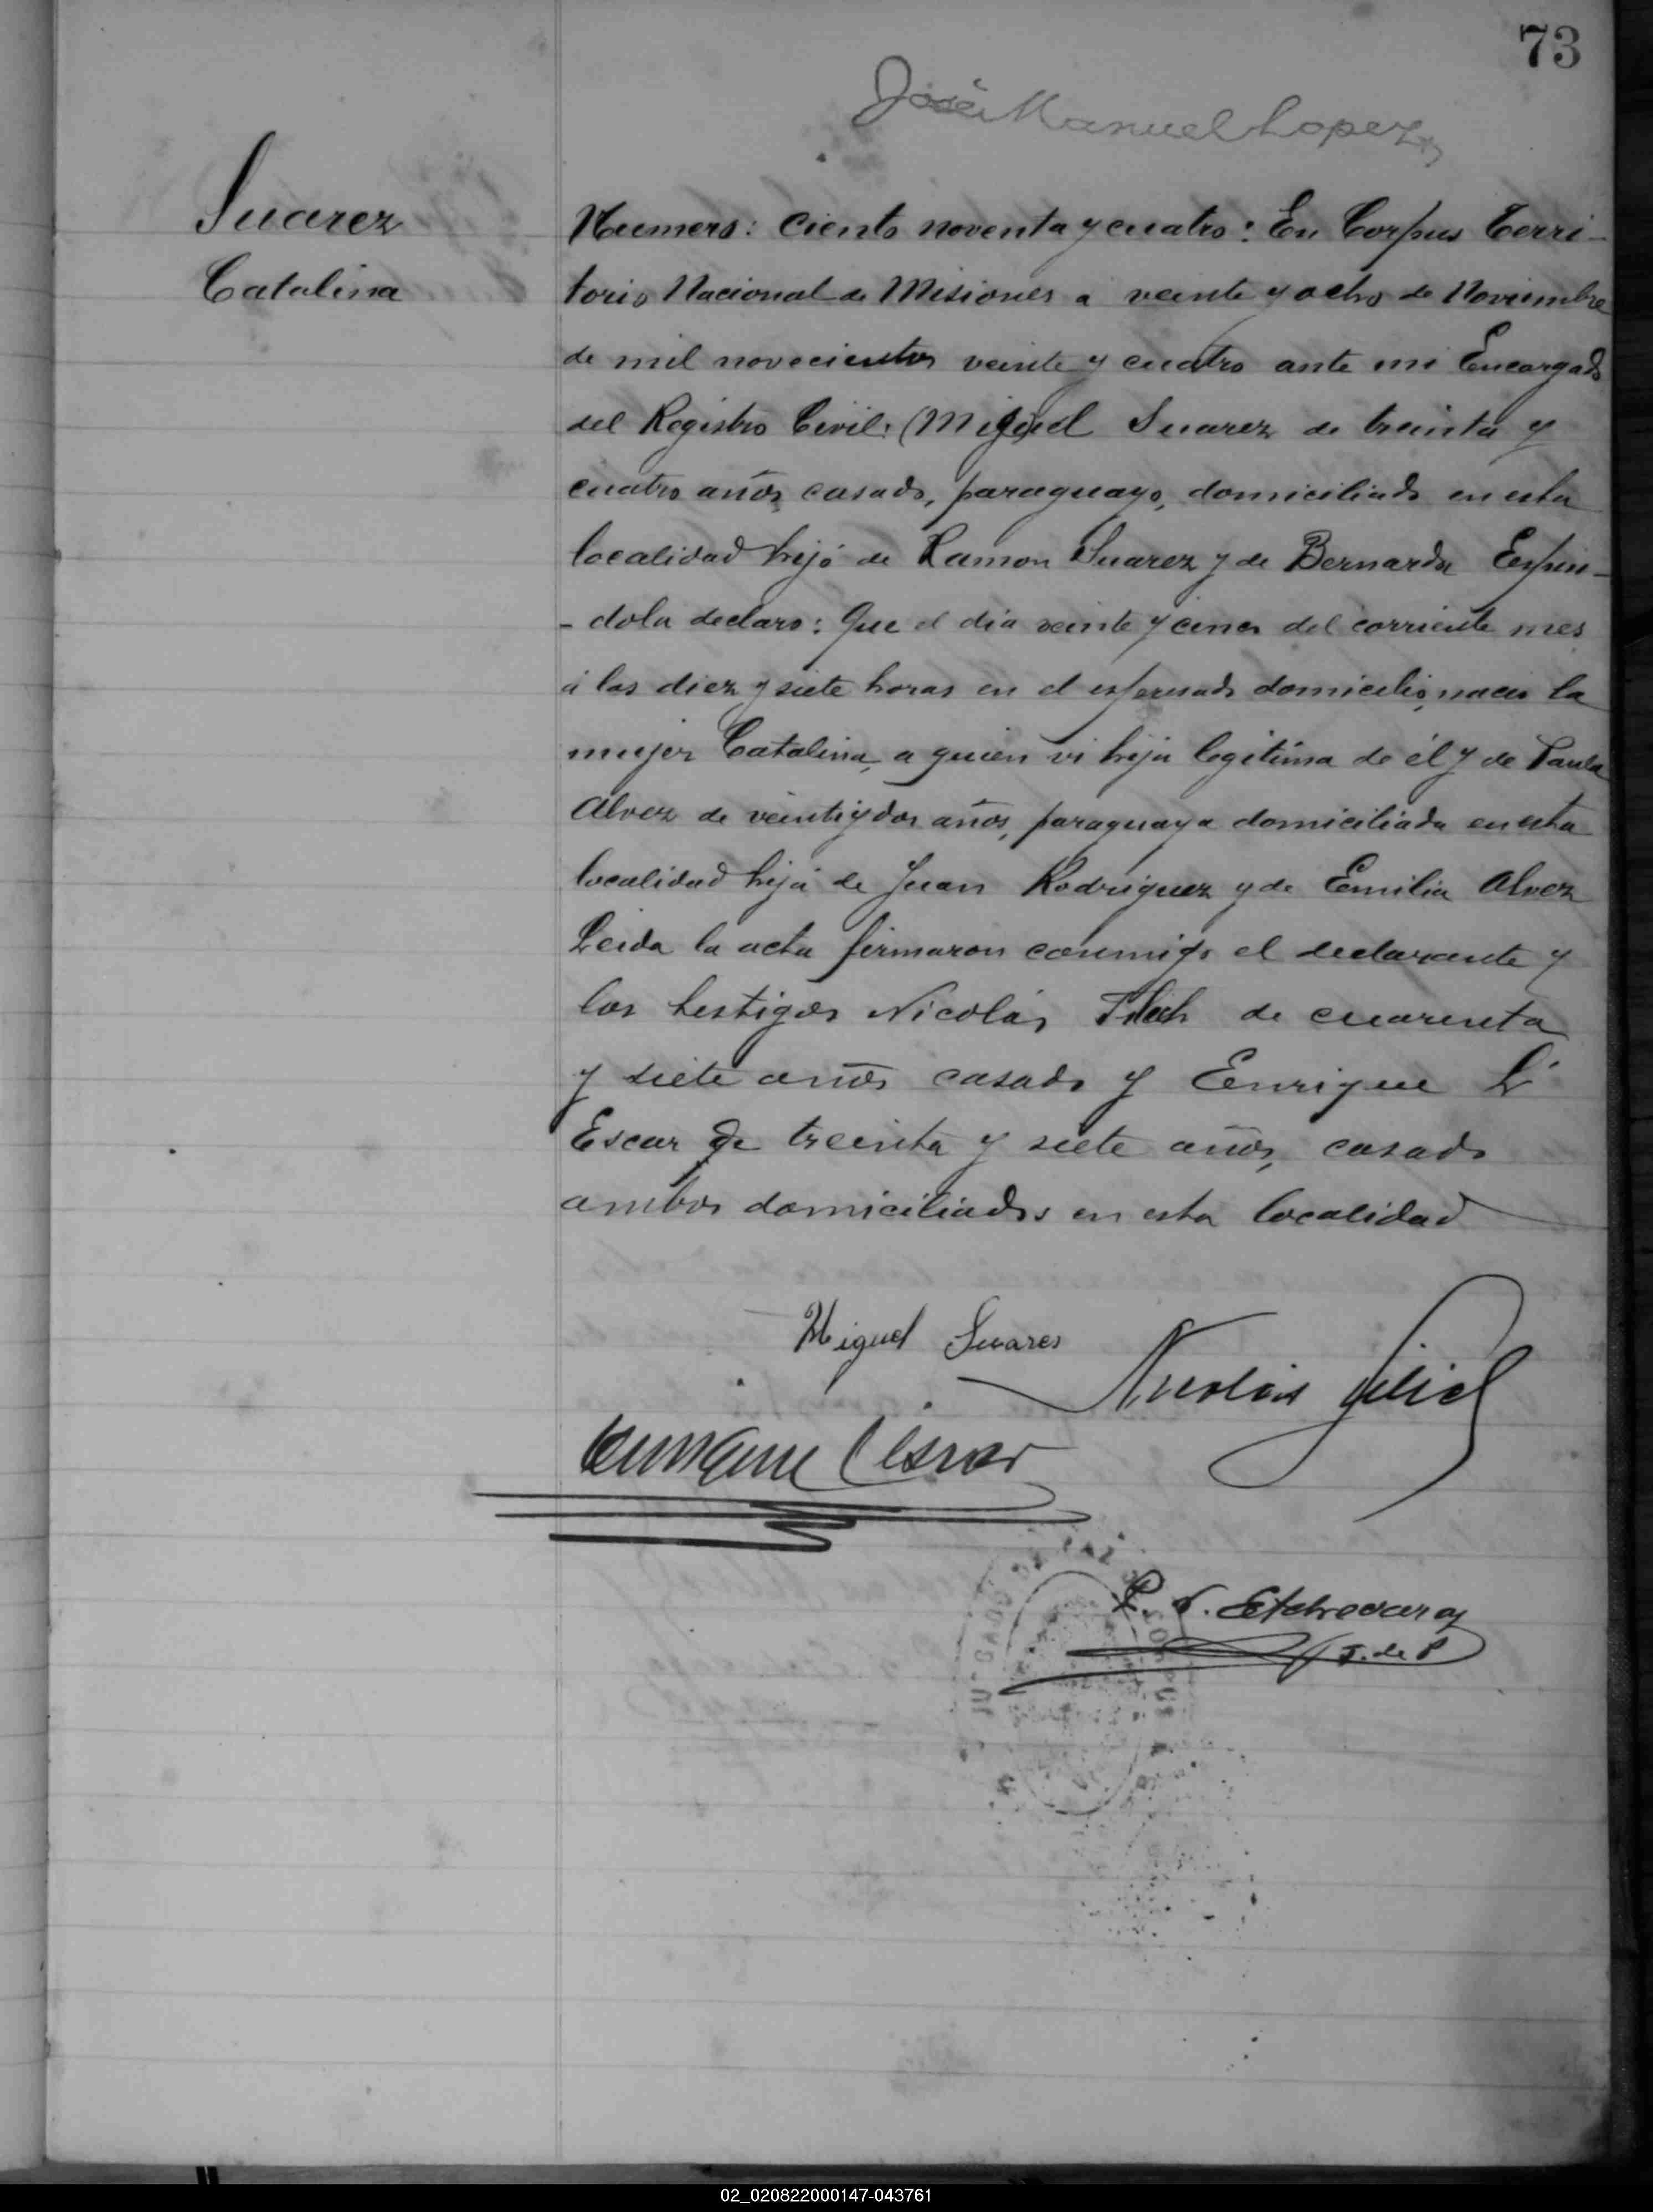 73
José Manuel Lopez
Suarez
Catalina
Numero: Ciento noventa y cuatro: En Corpus Terri-
torio Nacional de Misiones a veinte y ocho de Noviembre
de mil novecientos veinte y cuatro ante mi Encargado
del Registro Civil: (Miguel Suarez de treinta y
cuatro años casado, paraguayo, domiciliado en esta
localidad hijo de Ramon Suarez y de Bernarda Espin-
- dola declaro: Que el dia veinte y cinco del corriente mes
á las diez y siete horas en el espresado domicilio, nacio la
mujer Catalina, a quien vi hija legitima de él y de Paula
Alvez de veintiydos años, paraguaya domiciliada en esta
localidad hija de Juan Rodriguez y de Emilia Alvez
Leida la acta firmaron conmigo el declarante y
los testigos Nicolás de cuarenta
y siete años casado y Enrique L
Escar de treinta y siete años, casado
ambos domiciliados en esta localidad
Miguel Suares
Nicolás
Enrique Escar
P. Etchevaray
J. de P
02_020822000147-043761